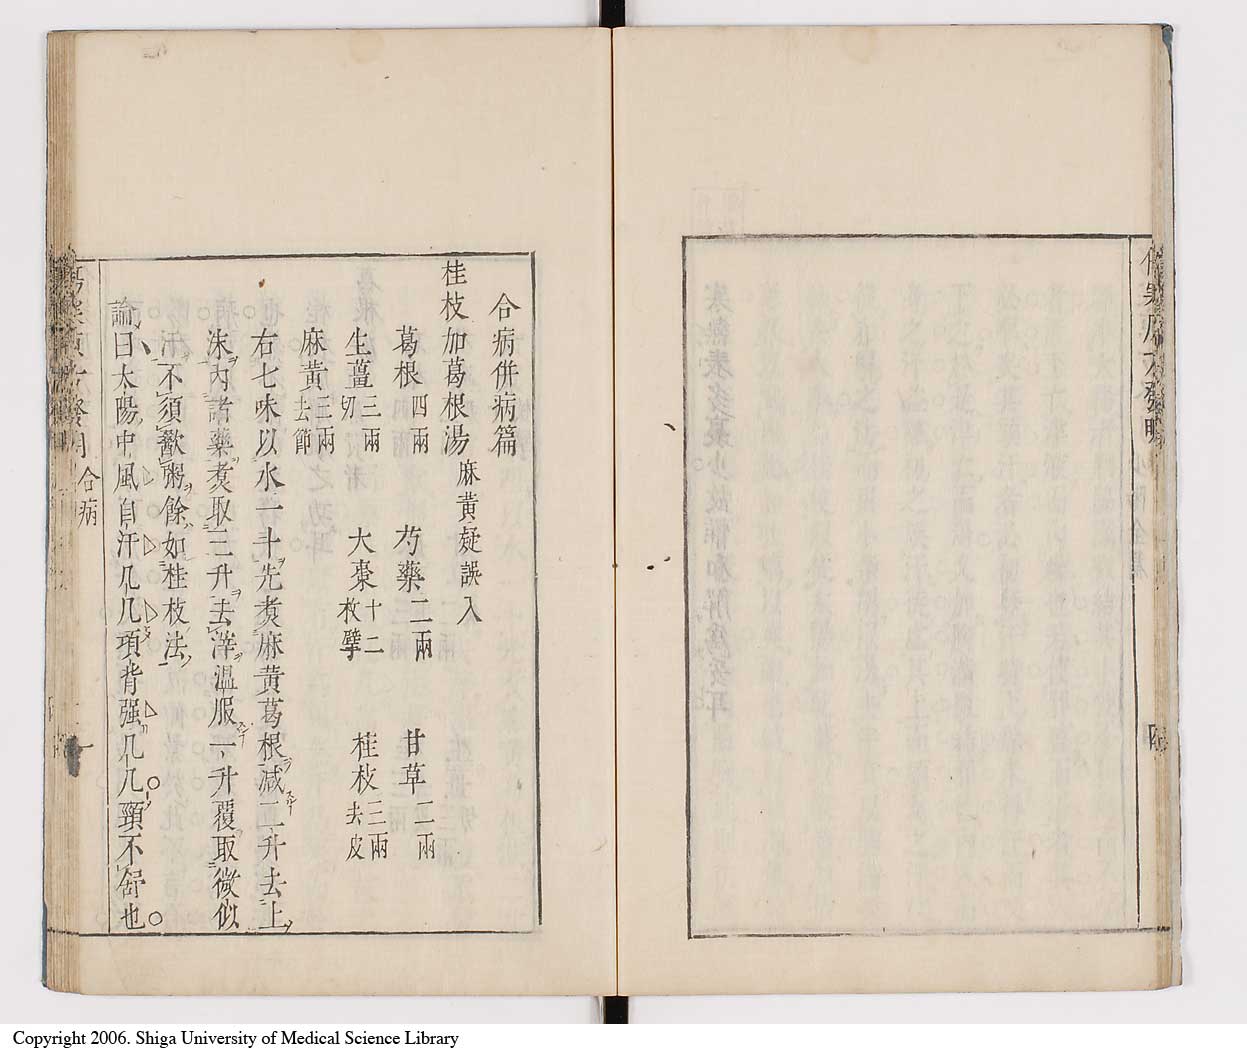 傷寒尚論發明
合病併病篇
桂枝加葛根湯 麻黃疑誤入
葛根四兩 芍藥二兩 甘草二兩
生薑三兩切 大棗十二枚擘 桂枝三兩去皮
麻黃三兩去節
右七味以水一斗先煑麻黃葛根減二升去上
沫內諸藥煑取三升去滓溫服一升覆取微似
汗不須歠粥餘如桂枝法
論曰太陽中風自汗几几項背强几几頸不舒也
合病
Copyright 2006. Shiga University of Medical Science Library